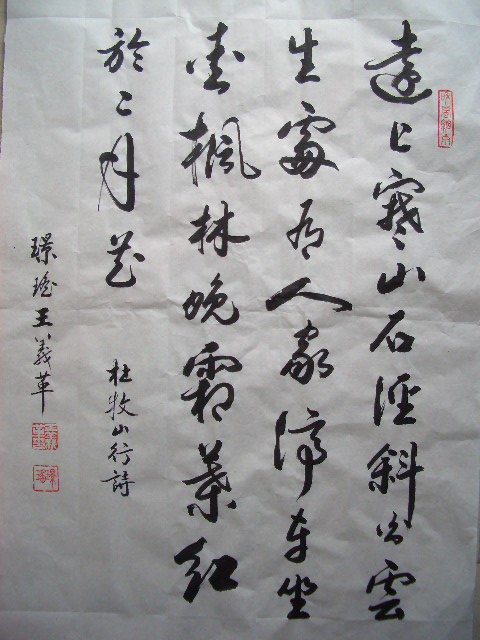 遠上寒山石徑斜白雲
生處有人家停車坐
愛楓林晚霜葉紅
於二月花
杜牧山行詩
璟瑤王義革